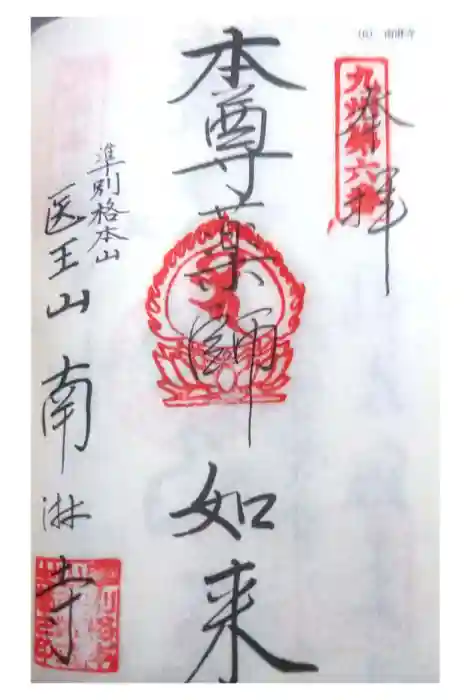 (6) 南淋寺
奉拝
九州第六番
本尊薬師如来
準別格本山
医王山 南淋寺